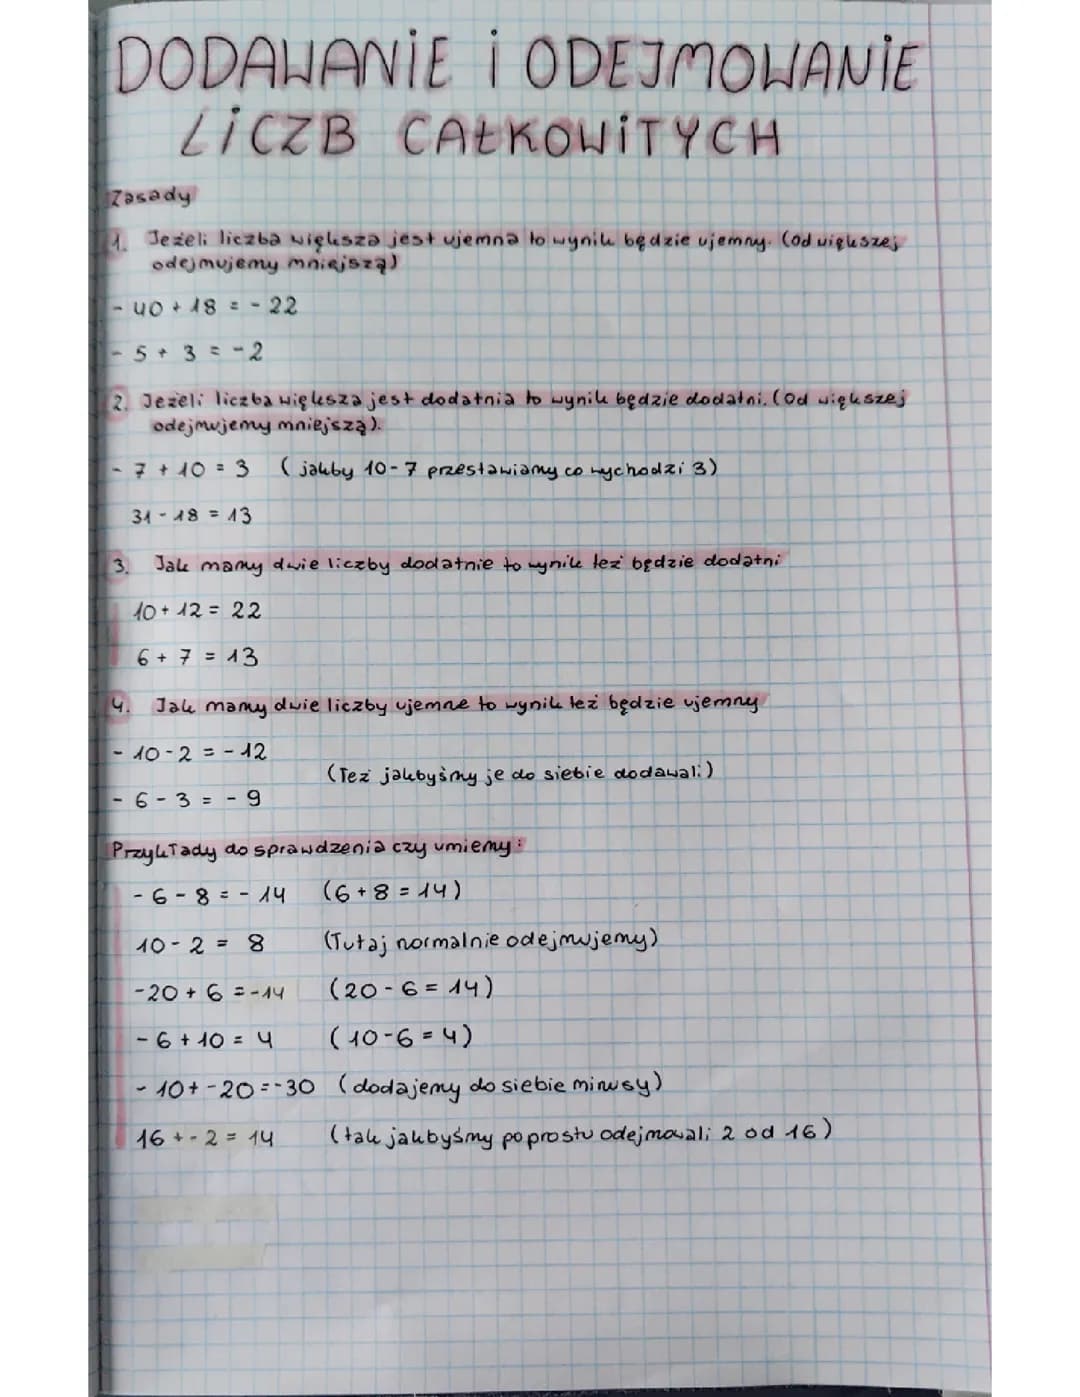 DODAWANIE i ODEJMOWANIE
LiCZB CAŁKOWiTYCH
Zasady
1. Jeżeli liczba większa jest ujemna to wynik będzie ujemny. (Od większej
odejmujemy mniejszą)
- 40 + 18 = - 22
- 5 + 3 = - 2
2. Jeżeli liczba większa jest dodatnia to wynik będzie dodatni. (Od większej
odejmujemy mniejszą).
- 7 + 10 = 3 (jakby 10-7 przestawiamy co wychodzi 3)
31 - 18 = 13
3. Jak mamy dwie liczby dodatnie to wynik też będzie dodatni
10 + 12 = 22
6 + 7 = 13
4. Jak mamy dwie liczby ujemne to wynik też będzie ujemny
- 10 - 2 = - 12
(Też jakbyśmy je do siebie dodawali)
- 6 - 3 = - 9
Przykłady do sprawdzenia czy umiemy:
- 6 - 8 = - 14 (6 + 8 = 14)
10 - 2 = 8 (Tutaj normalnie odejmujemy)
-20 + 6 = -14 (20 - 6 = 14)
- 6 + 10 = 4 (10 - 6 = 4)
- 10 + -20 = -30 (dodajemy do siebie minusy)
16 + - 2 = 14 (tak jakbyśmy poprostu odejmowali 2 od 16)